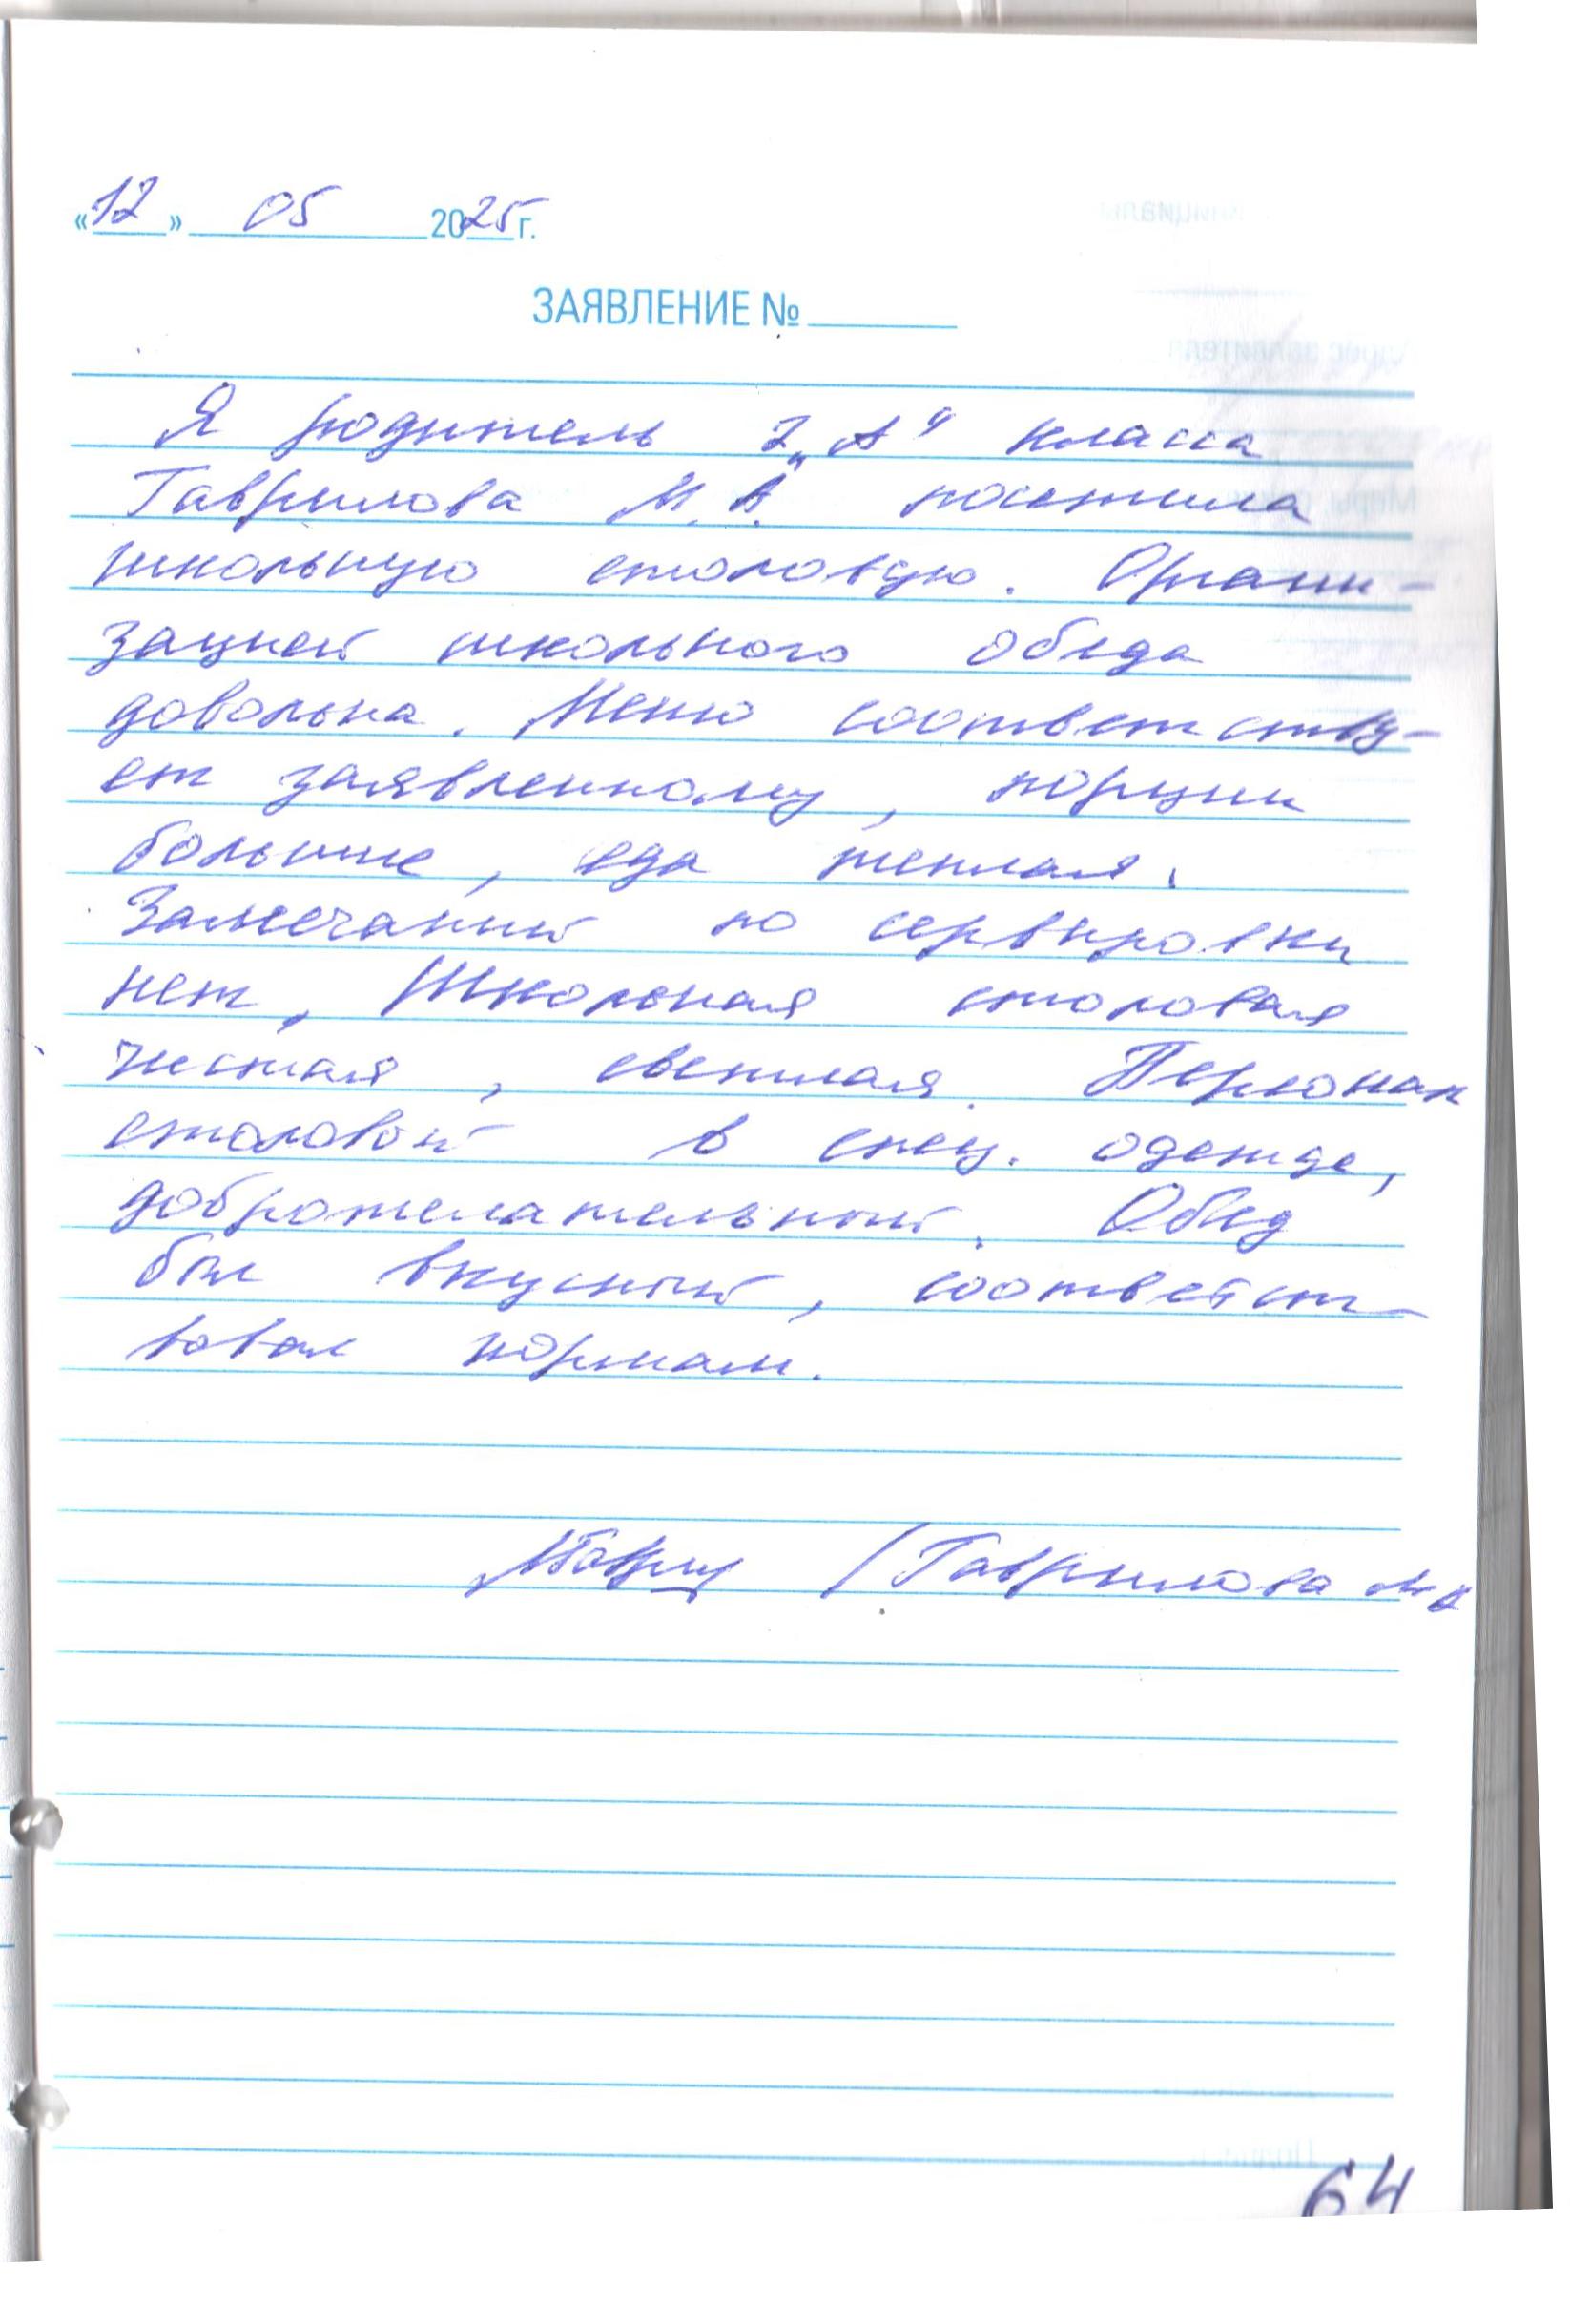 «12» 05 2025 г.
ЗАЯВЛЕНИЕ №
Я родитель 7 „А" класса
Гаврилова М. А. посетила
школьную столовую. Органи-
зацией школьного обеда
довольна. Меню соответству-
ет заявленному, порции
большие, еда теплая.
Замечаний по сервировки
нет, Школьная столовая
чистая, светлая. Персонал
столовой в спец. одежде,
доброжелательный. Обед
был вкусный, соответст-
вовал нормам.
/ Гаврилова М А
64